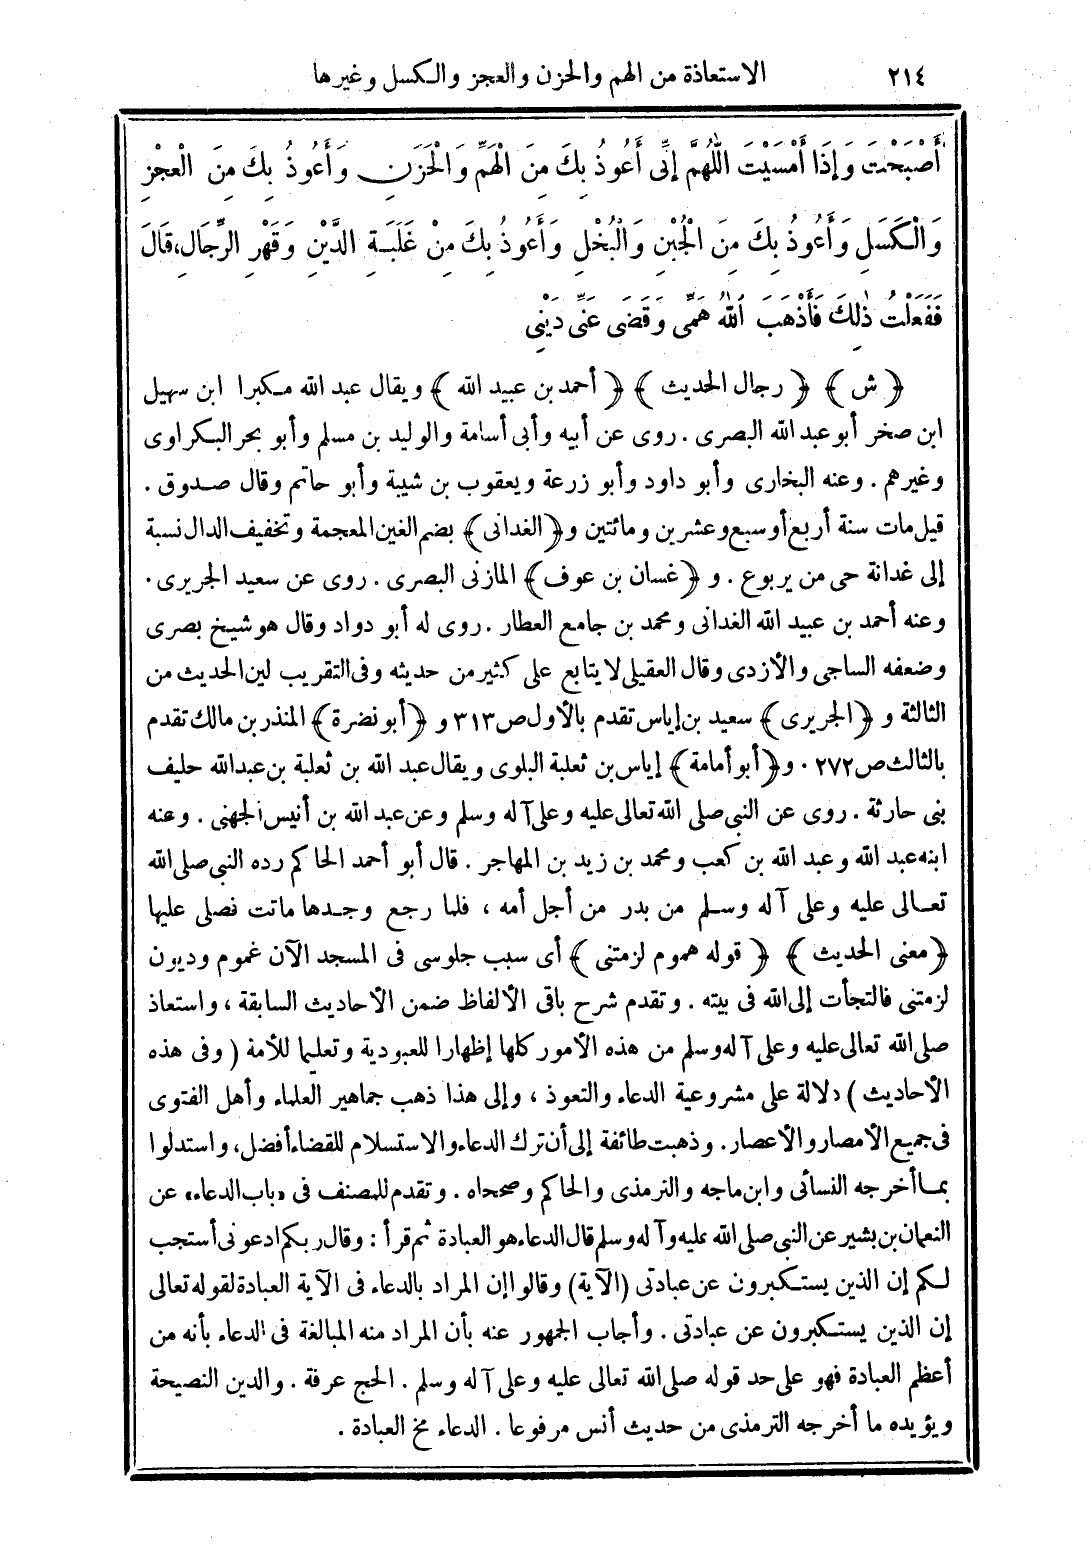 ٢١٤ الاستعاذة من الهم والحزن والعجز والكسل وغيرها
أَصْبَحْتَ وَإِذَا أَمْسَيْتَ اللَّهُمَّ إِنِّى أَعُوذُ بِكَ مِنَ الْهَمِّ وَالْحَزَنِ وَأَعُوذُ بِكَ مِنَ الْعَجْزِ
وَالْكَسَلِ وَأَعُوذُ بِكَ مِنَ الْجُبْنِ وَالْبُخْلِ وَأَعُوذُ بِكَ مِنْ غَلَبَةِ الدَّيْنِ وَقَهْرِ الرِّجَالِ، قَالَ
فَفَعَلْتُ ذٰلِكَ فَأَذْهَبَ اللّٰهُ هَمِّى وَقَضَى عَنِّى دَيْنِى
﴿ش﴾ ﴿رجال الحديث﴾ ﴿أحمد بن عبيد الله﴾ ويقال عبد الله مكبرا ابن سهيل
ابن صخر أبو عبد الله البصرى . روى عن أبيه وأبى أسامة والوليد بن مسلم وأبو بحر البكراوى
وغيرهم . وعنه البخارى وأبو داود وأبو زرعة ويعقوب بن شيبة وأبو حاتم وقال صدوق .
قيل مات سنة أربع أو سبع وعشرين ومائتين و﴿الغدانى﴾ بضم الغين المعجمة وتخفيف الدال نسبة
إلى غدانة حى من يربوع . و ﴿غسان بن عوف﴾ المازنى البصرى . روى عن سعيد الجريرى .
وعنه أحمد بن عبيد الله الغدانى ومحمد بن جامع العطار . روى له أبو دواد وقال هو شيخ بصرى
وضعفه الساجى والأزدى وقال العقيلى لا يتابع على كثير من حديثه وفى التقريب لين الحديث من
الثالثة و ﴿الجريرى﴾ سعيد بن إياس تقدم بالأول ص ٣١٣ و ﴿أبو نضرة﴾ المنذر بن مالك تقدم
بالثالث ص ٢٧٢ . و﴿أبو أمامة﴾ إياس بن ثعلبة البلوى ويقال عبد الله بن ثعلبة بن عبد الله حليف
بنى حارثة . روى عن النبى صلى الله تعالى عليه وعلى آله وسلم وعن عبد الله بن أنيس الجهنى . وعنه
ابنه عبد الله وعبد الله بن كعب ومحمد بن زيد بن المهاجر . قال أبو أحمد الحاكم رده النبى صلى الله
تعالى عليه وعلى آله وسلم من بدر من أجل أمه ، فلما رجع وجدها ماتت فصلى عليها
﴿معنى الحديث﴾ ﴿قوله هموم لزمتنى﴾ أى سبب جلوسى فى المسجد الآن غموم وديون
لزمتنى فالتجأت إلى الله فى بيته . وتقدم شرح باقى الألفاظ ضمن الأحاديث السابقة ، واستعاذ
صلى الله تعالى عليه وعلى آله وسلم من هذه الأمور كلها إظهارا للعبودية وتعليما للأمة (وفى هذه
الأحاديث) دلالة على مشروعية الدعاء والتعوذ ، وإلى هذا ذهب جماهير العلماء وأهل الفتوى
فى جميع الأمصار والأعصار . وذهبت طائفة إلى أن ترك الدعاء والاستسلام للقضاء أفضل، واستدلوا
بما أخرجه النسائى وابن ماجه والترمذى والحاكم وصححاه . وتقدم للمصنف فى «باب الدعاء» عن
النعمان بن بشير عن النبى صلى الله عليه وآله وسلم قال الدعاء هو العبادة ثم قرأ : وقال ربكم ادعونى أستجب
لكم إن الذين يستكبرون عن عبادتى (الآية) وقالوا إن المراد بالدعاء فى الآية العبادة لقوله تعالى
إن الذين يستكبرون عن عبادتى . وأجاب الجمهور عنه بأن المراد منه المبالغة فى الدعاء بأنه من
أعظم العبادة فهو على حد قوله صلى الله تعالى عليه وعلى آله وسلم . الحج عرفة . والدين النصيحة
ويؤيده ما أخرجه الترمذى من حديث أنس مرفوعا . الدعاء مخ العبادة .